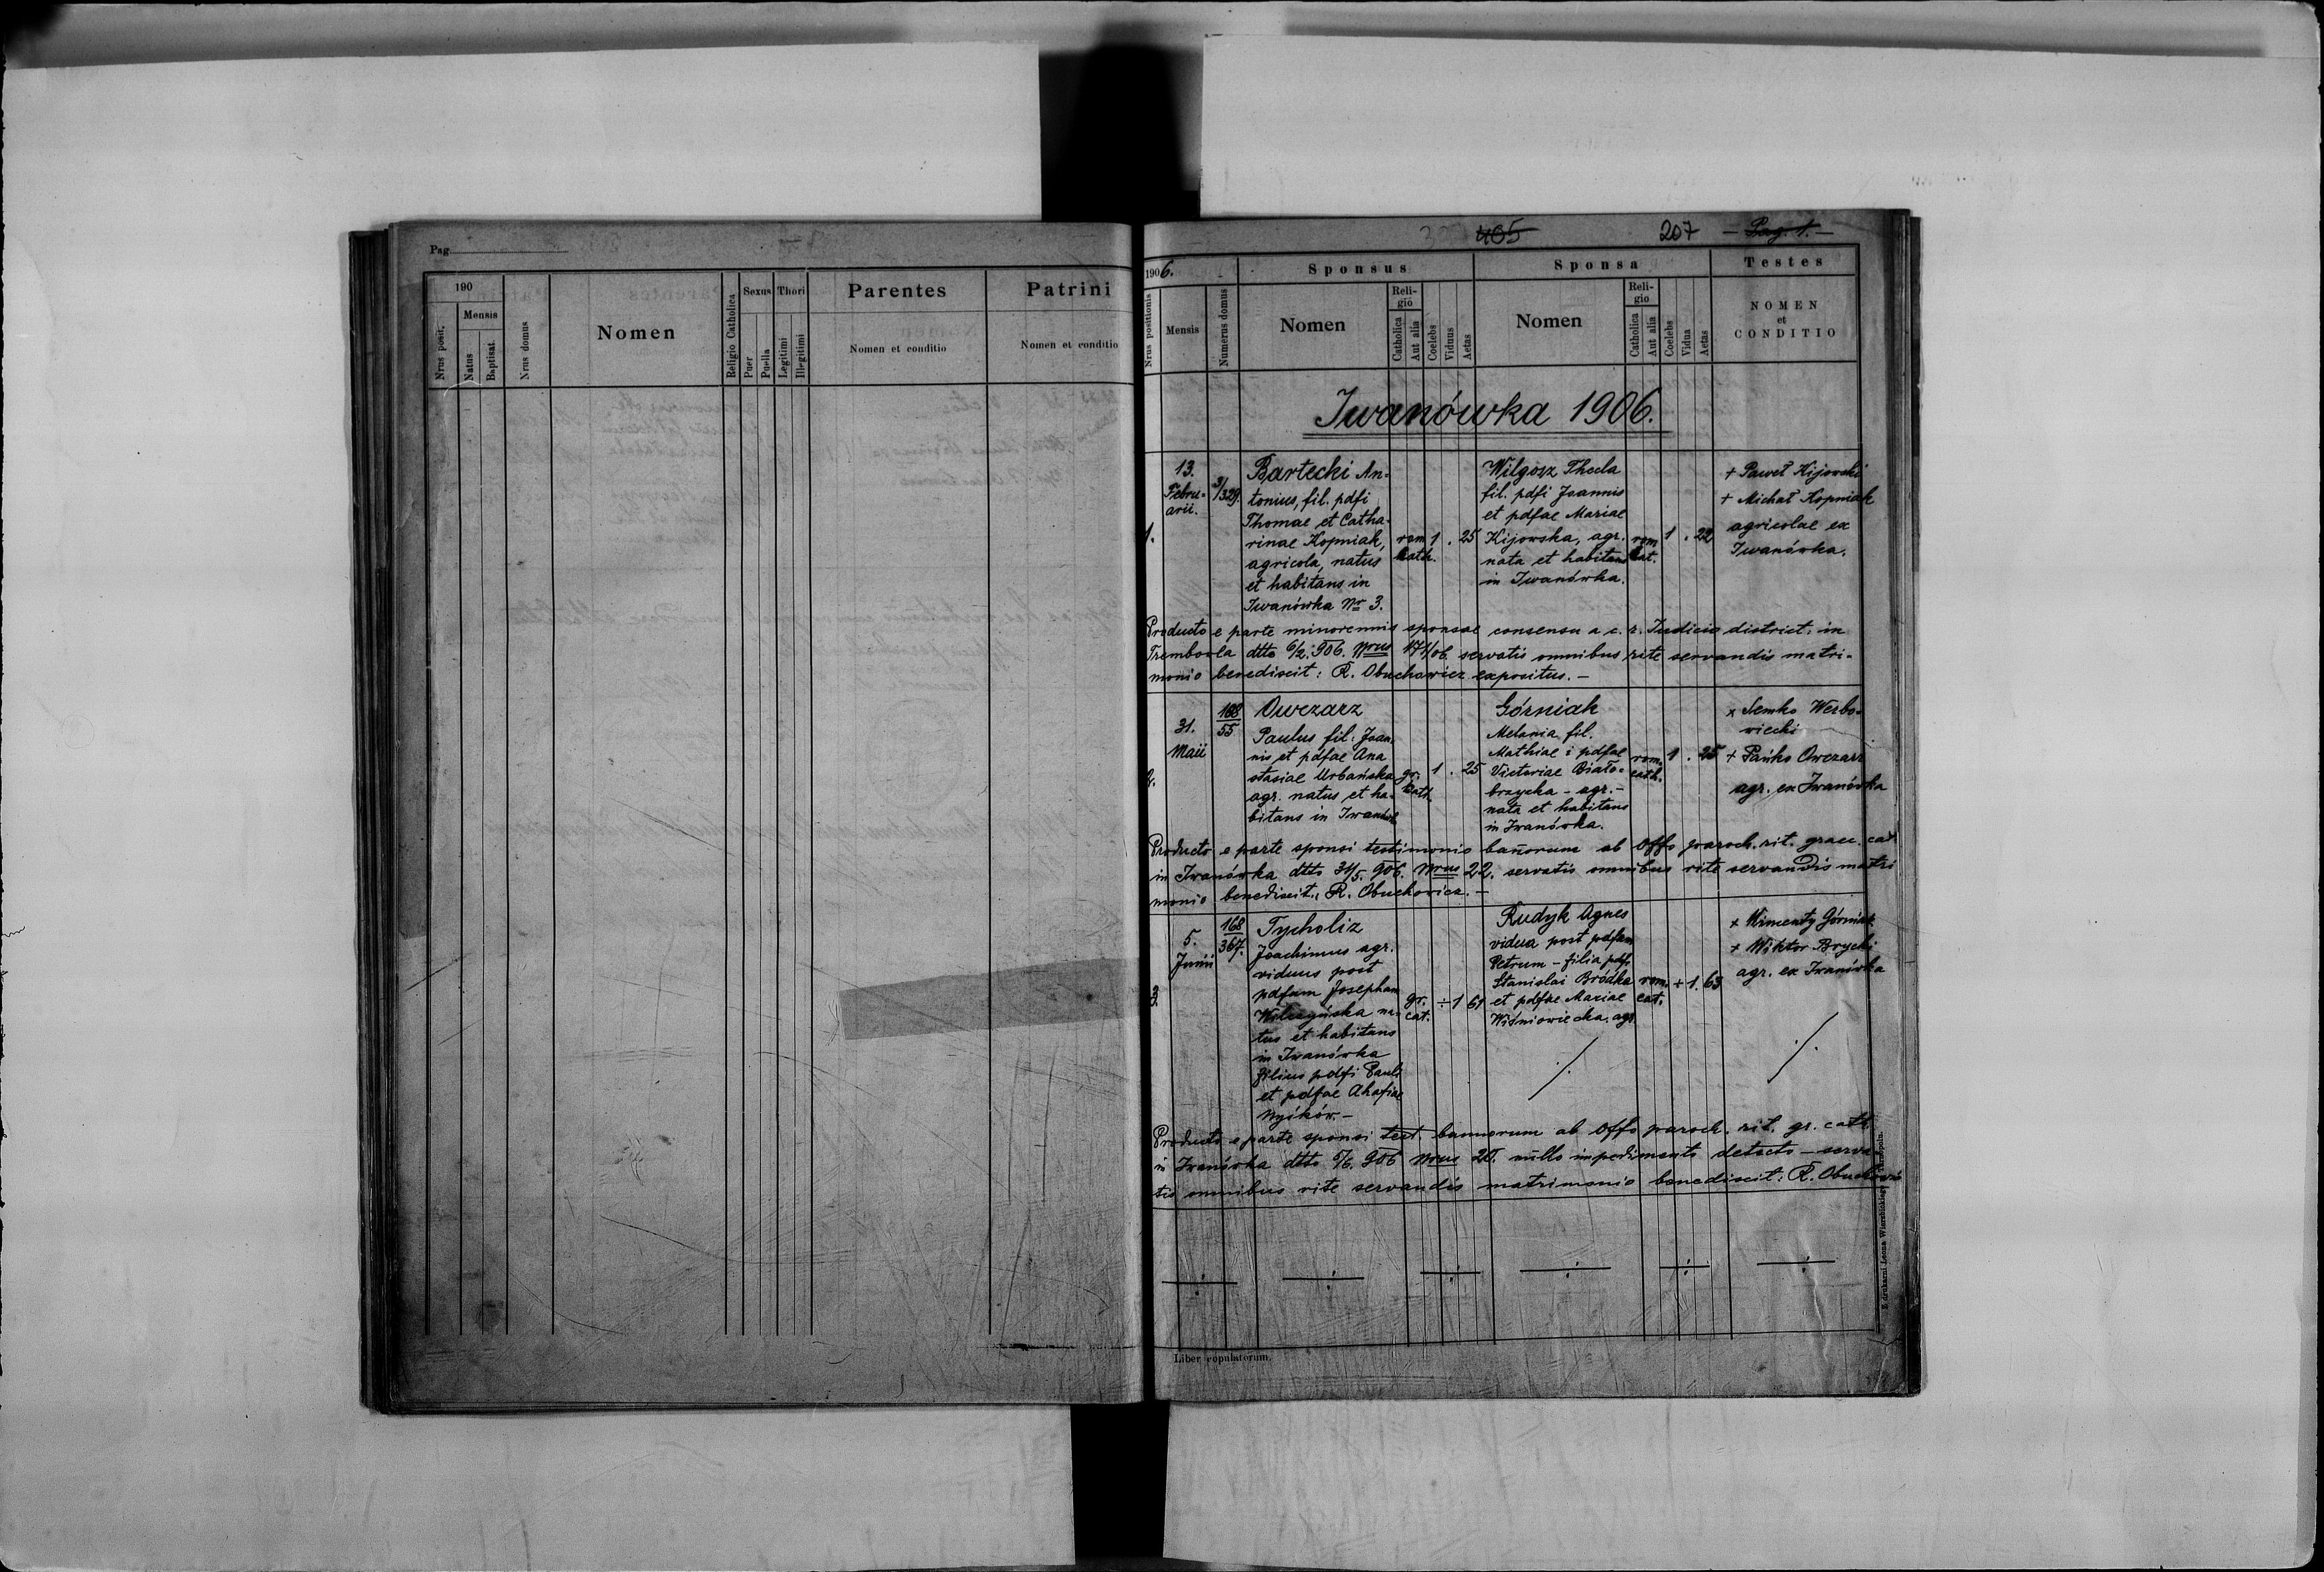 Pag.
190
Nrus posit.
Mensis
Natus
Baptisat.
Nrus domus
Nomen
Religio Catholica
Sexus
Puer
Puella
Thori
Legitimi
Illegitimi
Parentes
Nomen et conditio
Patrini
Nomen et conditio
405
207
— Pag. 1. —
1906.
Nrus positionis
Mensis
Numerus domus
Sponsus
Nomen
Religio
Catholica
Aut alia
Coelebs
Viduus
Aetas
Sponsa
Nomen
Religio
Catholica
Aut alia
Coelebs
Vidua
Aetas
Testes
NOMEN
et
CONDITIO
Iwanówka 1906.
1.
13.
Febru-
arii.
3/329.
Bartecki An-
tonius, fil. pdfi
Thomae et Catha-
rinae Kopniak,
agricola, natus
et habitans in
Iwanówka No 3.
rom
cath.
1 . 25
Wilgosz Thecla
fil. pdfi Joannis
et pdfae Mariae
Kijowska, agr.
nata et habitans
in Iwanówka.
rom
cat.
1 . 22
+ Paweł Kijowski
+ Michał Kopniak
agricolae ex
Iwanówka.
Producto e parte minorennis sponsae consensu a c. r. Iudicio district. in
Trembowla dtto 6/2. 906. Nrus 171/06. servatis omnibus rite servandis matri-
monio benedixit: R. Obuchowicz expositus. —
2.
31.
Maii
188
55
Owczarz
Paulus fil. Joan-
nis et pdfae Ana
stasiae Urbańska
agr. natus et ha-
bitans in Iwanówk
gr.
cath.
1 . 25
Górniak
Melania fil.
Mathiae i pdfae
Victoriae Biało-
brzycka - agr. -
nata et habitans
in Iwanówka.
rom.
cath.
1 . 25
x Semko Werbo-
wiecki
+ Pańko Owczarz
agr. ex Iwanówka
Producto e parte sponsi testimonio bannorum ab Offo paroch. rit. graec. cat
in Iwanówka dtto 31/5. 906. Nrus 22. servatis omnibus rite servandis matri
monio benedixit: R. Obuchowicz. —
3
5.
Junii
168
367.
Tycholiz
Joachimus agr.
viduus post
pdfam Josepham
Wilczyńska na-
tus et habitans
in Iwanówka
filius pdfi Pauli
et pdfae Ahafiae
gr.
cat.
÷ 1 61
Rudyk Agnes
vidua post pdfum
Petrum - filia pdfi
Stanislai Bródka
et pdfae Mariae
Wiśniowiecka. agr.
rom.
cat.
÷ 1. 63
+ Wincenty Górniak
+ Wiktor Brycki
agr. ex Iwanówka
Producto e parte sponsi test. bannorum ab Offo paroch. rit. gr. cath
in Iwanówka dtto 906 Nrus 20. nullo impedimento detecto — serva-
tis omnibus rite servandis matrimonio benedixit: R. Obuchowicz
Liber copulatorum.
Z drukarni Leona Wierzbickiego w Tarnopolu.